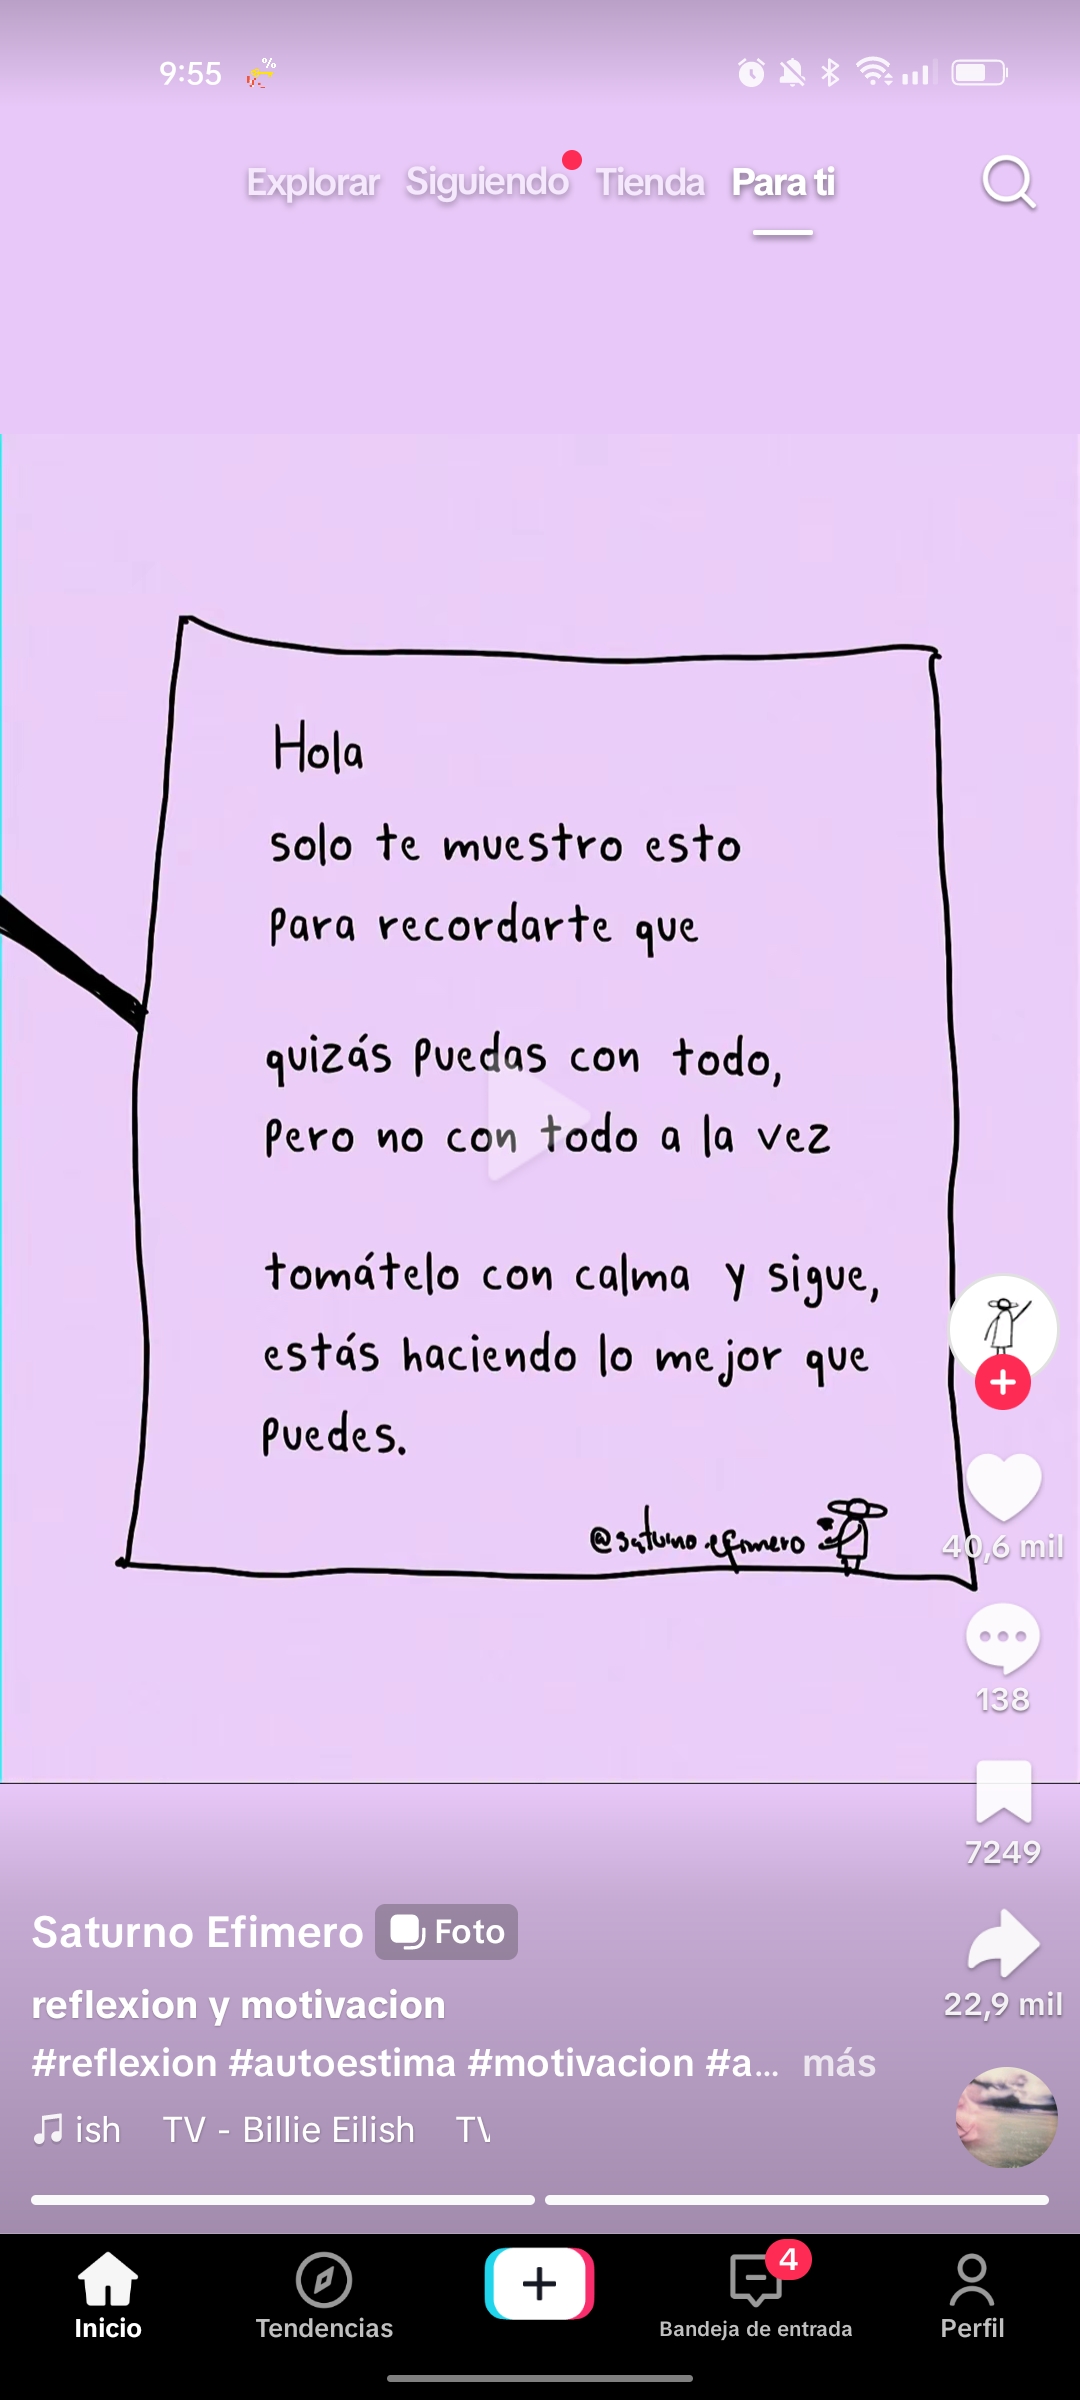 9:55 %
Explorar Siguiendo Tienda Para ti
Hola
solo te muestro esto
para recordarte que
quizás puedas con todo,
pero no con todo a la vez
tomátelo con calma y sigue,
estás haciendo lo mejor que
puedes.
@saturno.efimero
40,6 mil
138
7249
22,9 mil
Saturno Efimero Foto
reflexion y motivacion
#reflexion #autoestima #motivacion #a... más
ish TV - Billie Eilish TV
Inicio Tendencias 4 Bandeja de entrada Perfil